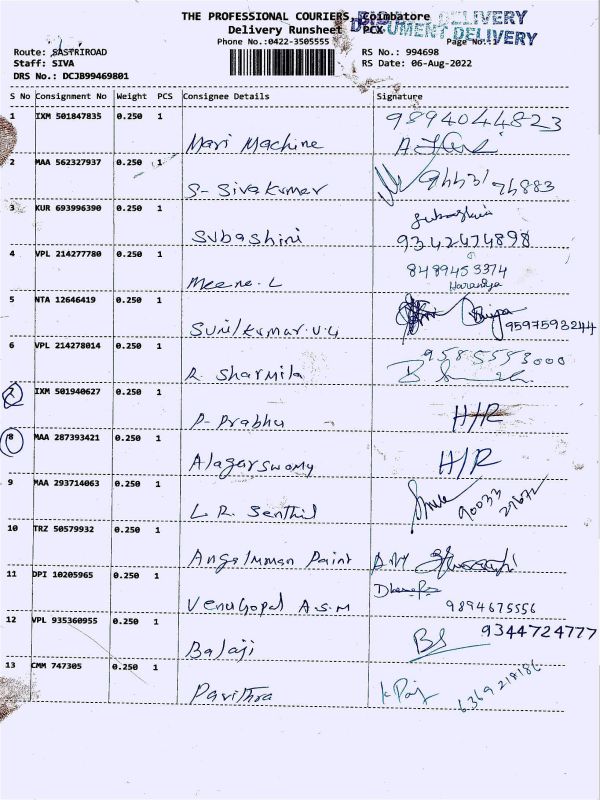 THE PROFESSIONAL COURIERS, Coimbatore
DOCUMENT DELIVERY
Delivery Runsheet PCX
Phone No.:0422-3505555 Page No.:1
Route: SASTRIROAD RS No.: 994698
Staff: SIVA RS Date: 06-Aug-2022
DRS No.: DCJB99469801
S No Consignment No Weight PCS Consignee Details Signature
1 IXM 501847835 0.250 1 Mari Machine 9894044823
2 MAA 562327937 0.250 1 S- Sivakumar
3 KUR 693996390 0.250 1 Subashini 9342474898
4 VPL 214277780 0.250 1 Meena. L 8489453374
Haranya
5 NTA 12646419 0.250 1 Sunilkumar.V.G 9597593244
6 VPL 214278014 0.250 1 R. Sharmila 9585553000
7 IXM 501940627 0.250 1 P- Prabhu H/R
8 MAA 287393421 0.250 1 Alagarswamy H/R
9 MAA 293714063 0.250 1 L. R. Senthil 90033
10 TRZ 50579932 0.250 1 Angalmman Paint
11 DPI 10205965 0.250 1 Venugopal A.S.M 9894675556
12 VPL 935360955 0.250 1 Balaji BS 9344724777
13 CMM 747305 0.250 1 Pavithra 6369218186